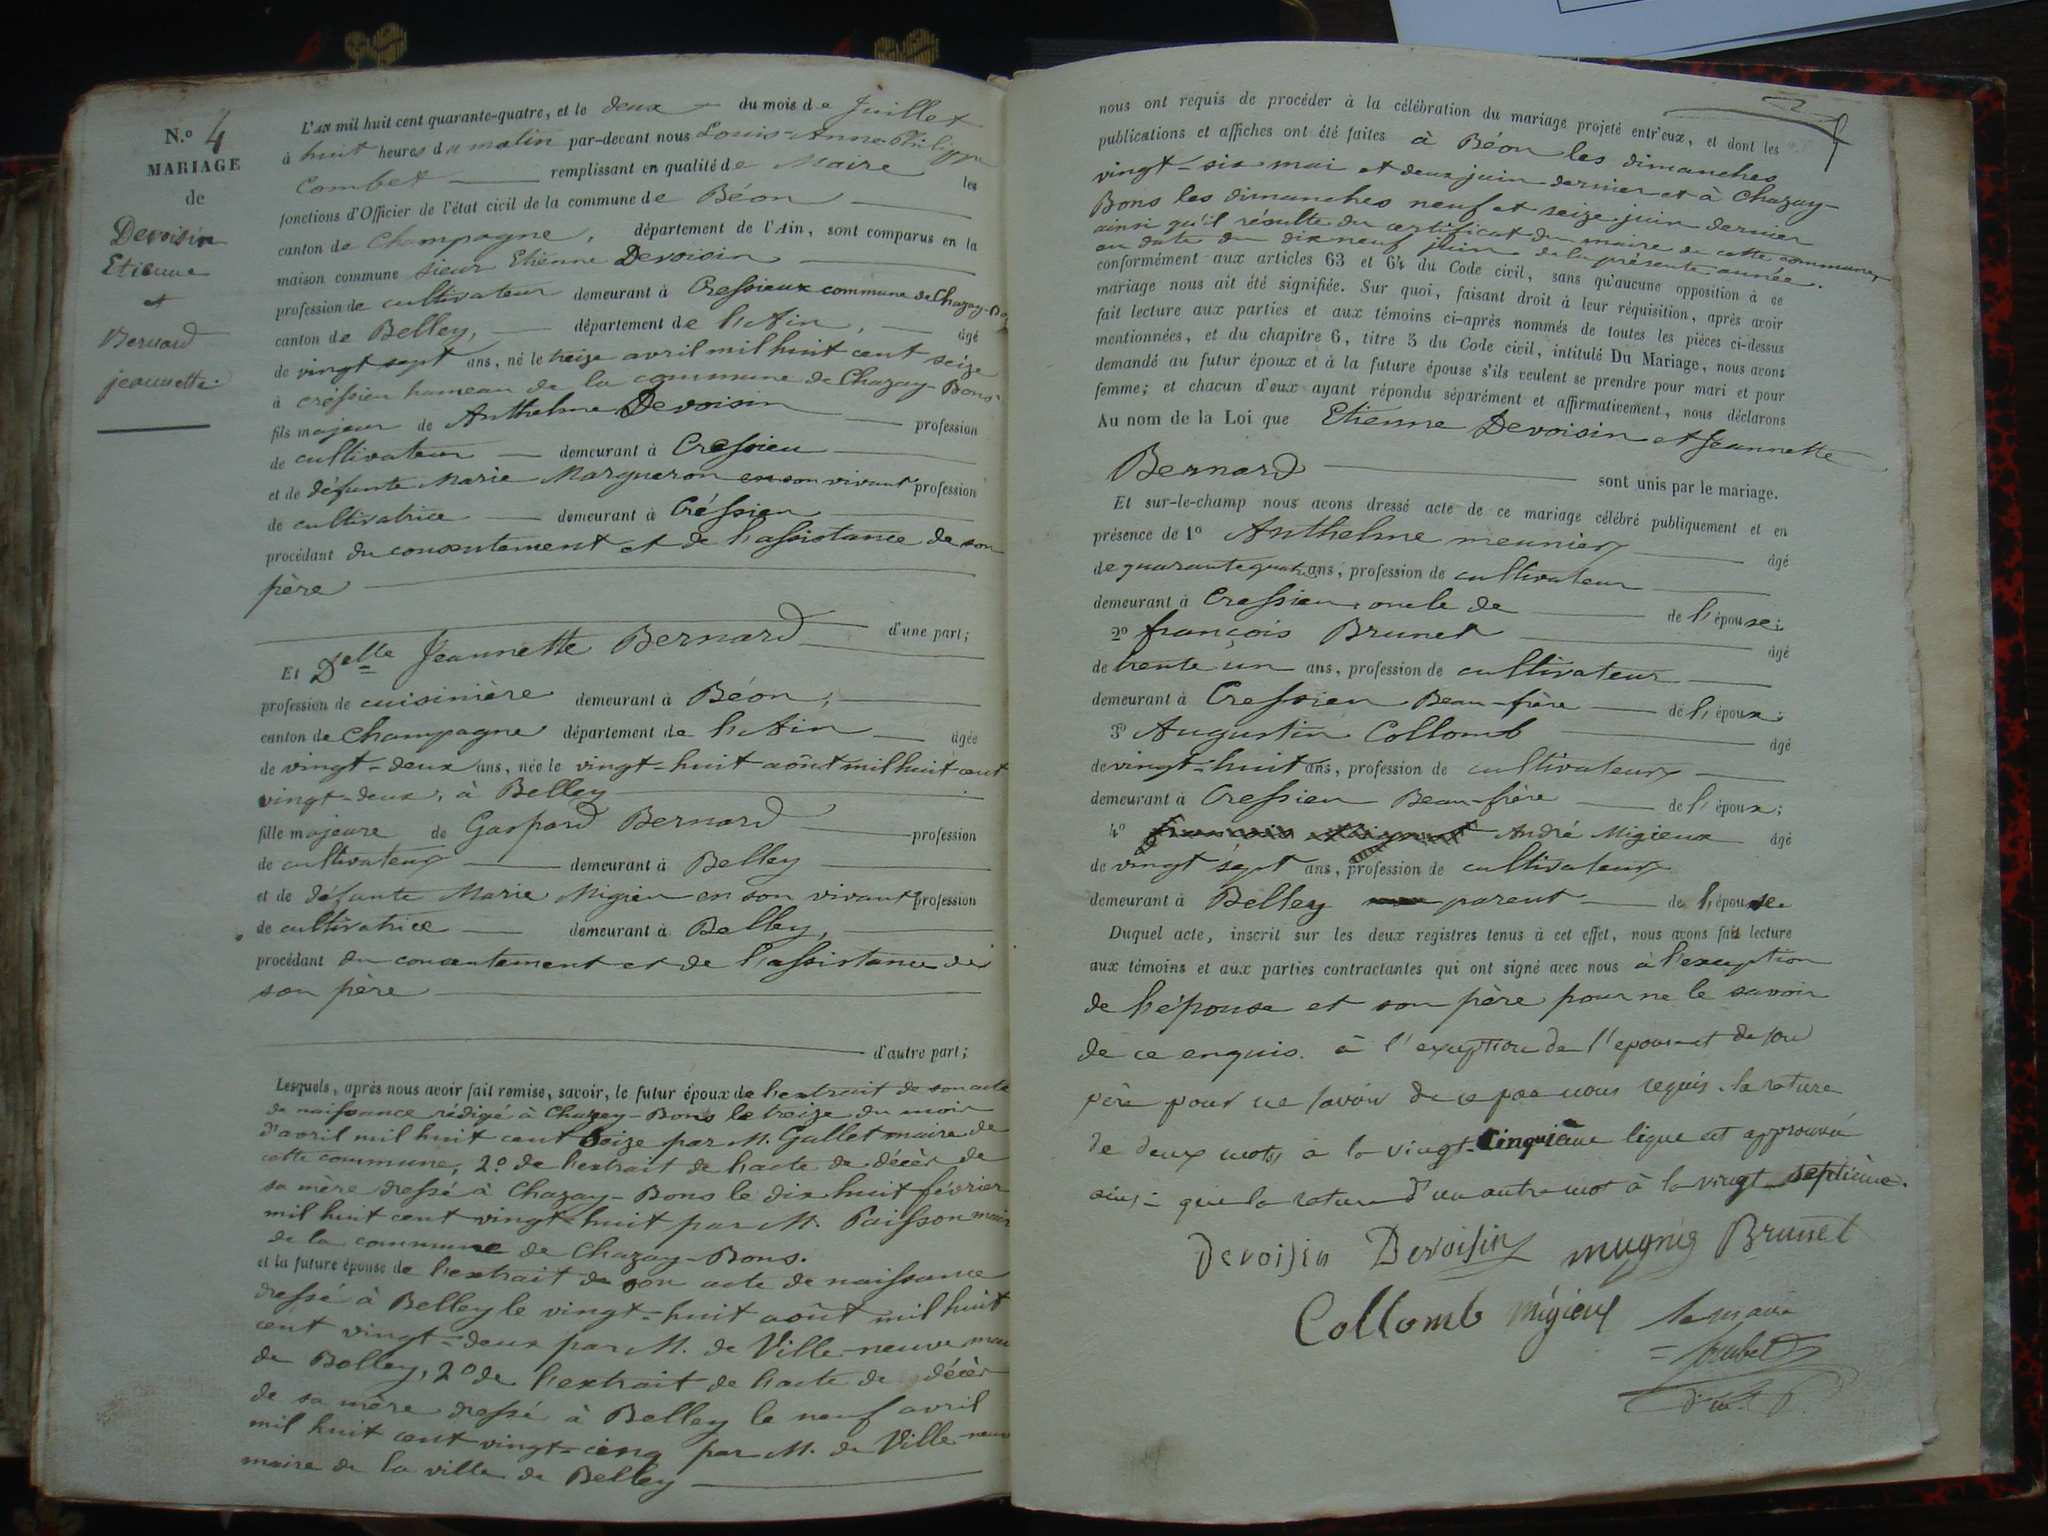 N.º 4
MARIAGE
de
Devoisin
Etienne
et
Bernard
jeannette.
L'AN mil huit cent quarante-quatre, et le deux du mois de Juillet
à huit heures du matin par-devant nous Louis-Anne-Philippe
Combet remplissant en qualité de Maire les
fonctions d'Officier de l'état civil de la commune de Béon
canton de Champagne, département de l'Ain, sont comparus en la
maison commune sieur Etienne Devoisin
profession de cultivateur demeurant à Cressieux commune de Chazay-Bons
canton de Belley, département de l'Ain, âgé
de vingt sept ans, né le treize avril mil huit cent seize
à créssieu hameau de la commune de Chazay-Bons
fils majeur de Anthelme Devoisin profession
de cultivateur demeurant à Cressieu
et de défunte Marie Margueron en son vivant profession
de cultivatrice demeurant à Créssieu
procédant du consentement et de l'assistance de son
père
d'une part;
Et Delle Jeannette Bernard
profession de cuisinière demeurant à Béon,
canton de Champagne département de l'Ain âgée
de vingt-deux ans, née le vingt-huit août mil huit cent
vingt-deux, à Belley
fille majeure de Gaspard Bernard profession
de cultivateur demeurant à Belley
et de défunte Marie Migieu en son vivant profession
de cultivatrice demeurant à Belley,
procédant du consentement et de l'assistance de
son père
d'autre part;
Lesquels, après nous avoir fait remise, savoir, le futur époux de l'extrait de son acte
de naissance rédigé à Chazey-Bons le treize du mois
d'avril mil huit cent seize par M. Gallet maire de
cette commune, 2º de l'extrait de l'acte de décès de
sa mère dressé à Chazay-Bons le dix huit février
mil huit cent vingt-huit par M. Paisson maire
de la commune de Chazay-Bons.
et la future épouse de l'extrait de son acte de naissance
dressé à Belley le vingt-huit août mil huit
cent vingt-deux par M. de Ville-neuve maire
de Belley, 2º de l'extrait de l'acte de décès
de sa mère dressé à Belley le neuf avril
mil huit cent vingt-cinq par M. de Ville-neuve
maire de la ville de Belley
nous ont requis de procéder à la célébration du mariage projeté entr'eux, et dont les
publications et affiches ont été faites à Béon les dimanches
vingt-six mai et deux juin dernier et à Chazay-
Bons les dimanches neuf et seize juin dernier
ainsi qu'il résulte du certificat du maire de cette commune,
en date du dix neuf juin de la présente année.
conformément aux articles 63 et 64 du Code civil, sans qu'aucune opposition à ce
mariage nous ait été signifiée. Sur quoi, faisant droit à leur réquisition, après avoir
fait lecture aux parties et aux témoins ci-après nommés de toutes les pièces ci-dessus
mentionnées, et du chapitre 6, titre 5 du Code civil, intitulé Du Mariage, nous avons
demandé au futur époux et à la future épouse s'ils veulent se prendre pour mari et pour
femme; et chacun d'eux ayant répondu séparément et affirmativement, nous déclarons
Au nom de la Loi que Etienne Devoisin et Jeannette
Bernard sont unis par le mariage.
Et sur-le-champ nous avons dressé acte de ce mariage célébré publiquement et en
présence de 1º Anthelme meunier âgé
de quarante quatre ans, profession de cultivateur
demeurant à Cressieu, oncle de de l'épouse;
2º françois Brunet âgé
de trente un ans, profession de cultivateur
demeurant à Cressieu Beau-frère de l'époux;
3º Augustin Collomb âgé
de vingt-huit ans, profession de cultivateur
demeurant à Cressieu Beau-frère de l'époux;
4º André Migieux âgé
de vingt sept ans, profession de cultivateur
demeurant à Belley parent de l'épouse.
Duquel acte, inscrit sur les deux registres tenus à cet effet, nous avons fait lecture
aux témoins et aux parties contractantes qui ont signé avec nous à l'exception
de l'épouse et son père pour ne le savoir
de ce enquis. à l'exception de l'epouse et de son
père pour ne savoir de ce par nous requis. la rature
de deux mots à la vingt-cinquième ligne est approuvé
ainsi que la rature d'un autre mot à la vingt septième.
Devoisin Devoisin mugnié Brunet
Collomb Migieux le maire
Combet